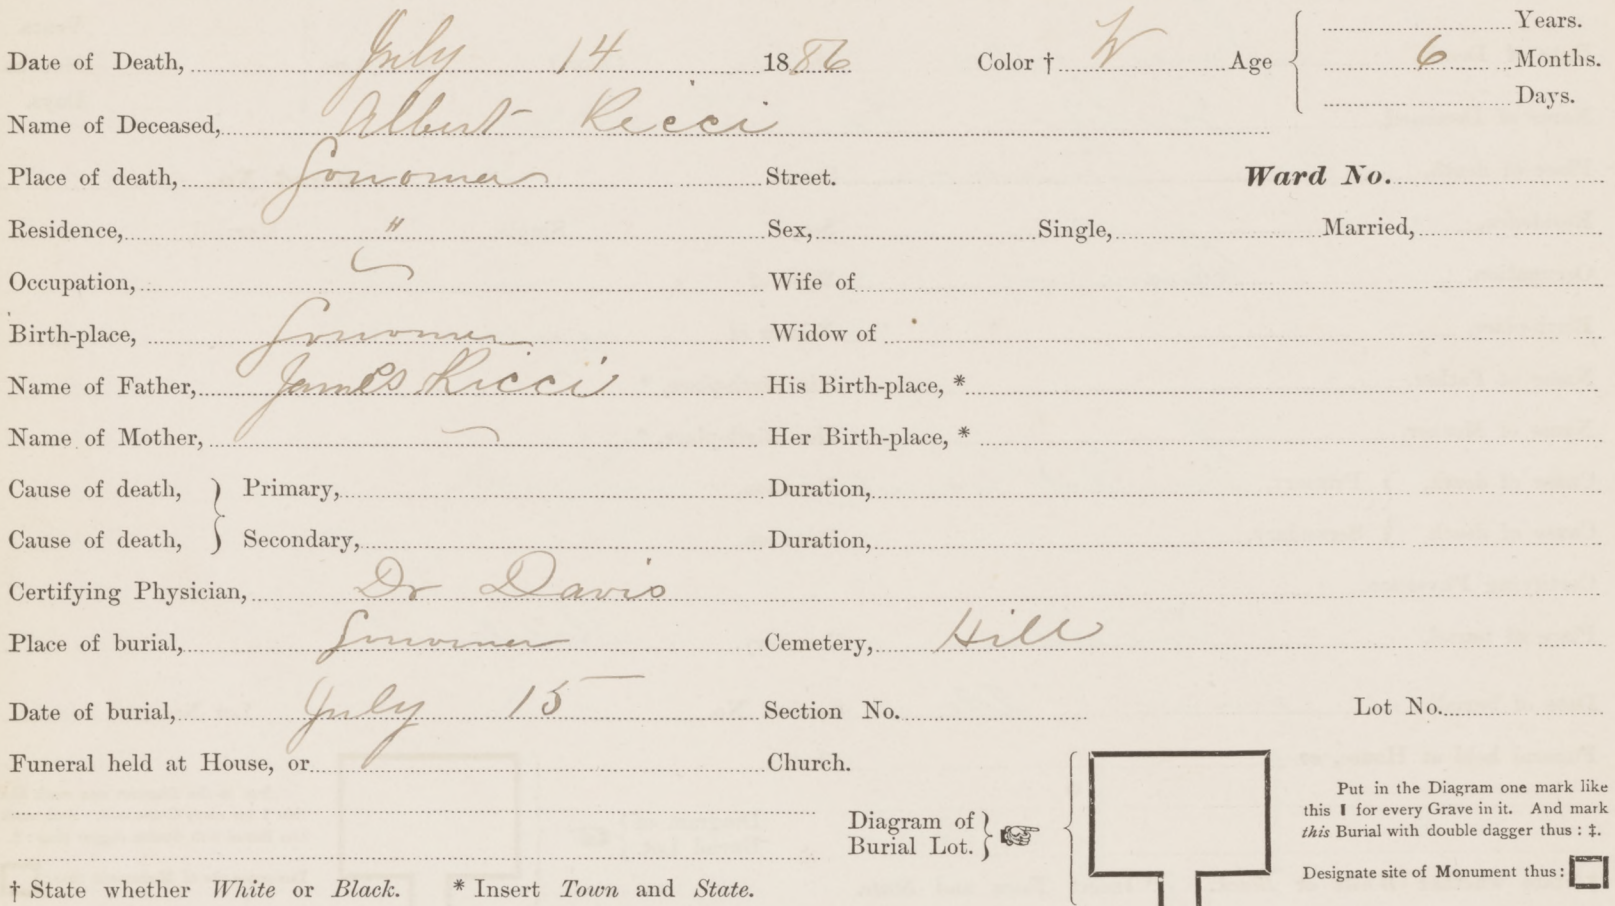 Date of Death, July 14 1886 Color † W Age 6 Years. Months. Days.
Name of Deceased, Albert Ricci
Place of death, Sonoma Street. Ward No.
Residence, " Sex, Single, Married,
Occupation, Wife of
Birth-place, Sonoma Widow of
Name of Father, James Ricci His Birth-place, *
Name of Mother, Her Birth-place, *
Cause of death, } Primary, Duration,
Cause of death, } Secondary, Duration,
Certifying Physician, Dr Davis
Place of burial, Sonoma Cemetery, Hill
Date of burial, July 15 Section No. Lot No.
Funeral held at House, or Church.
Diagram of Burial Lot. }
Put in the Diagram one mark like
this I for every Grave in it. And mark
this Burial with double dagger thus : ‡.
Designate site of Monument thus :
† State whether White or Black. * Insert Town and State.